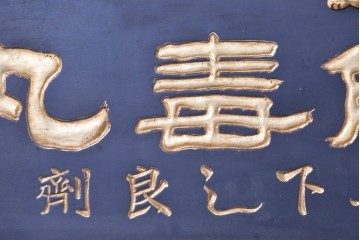 毒丸
下之良劑